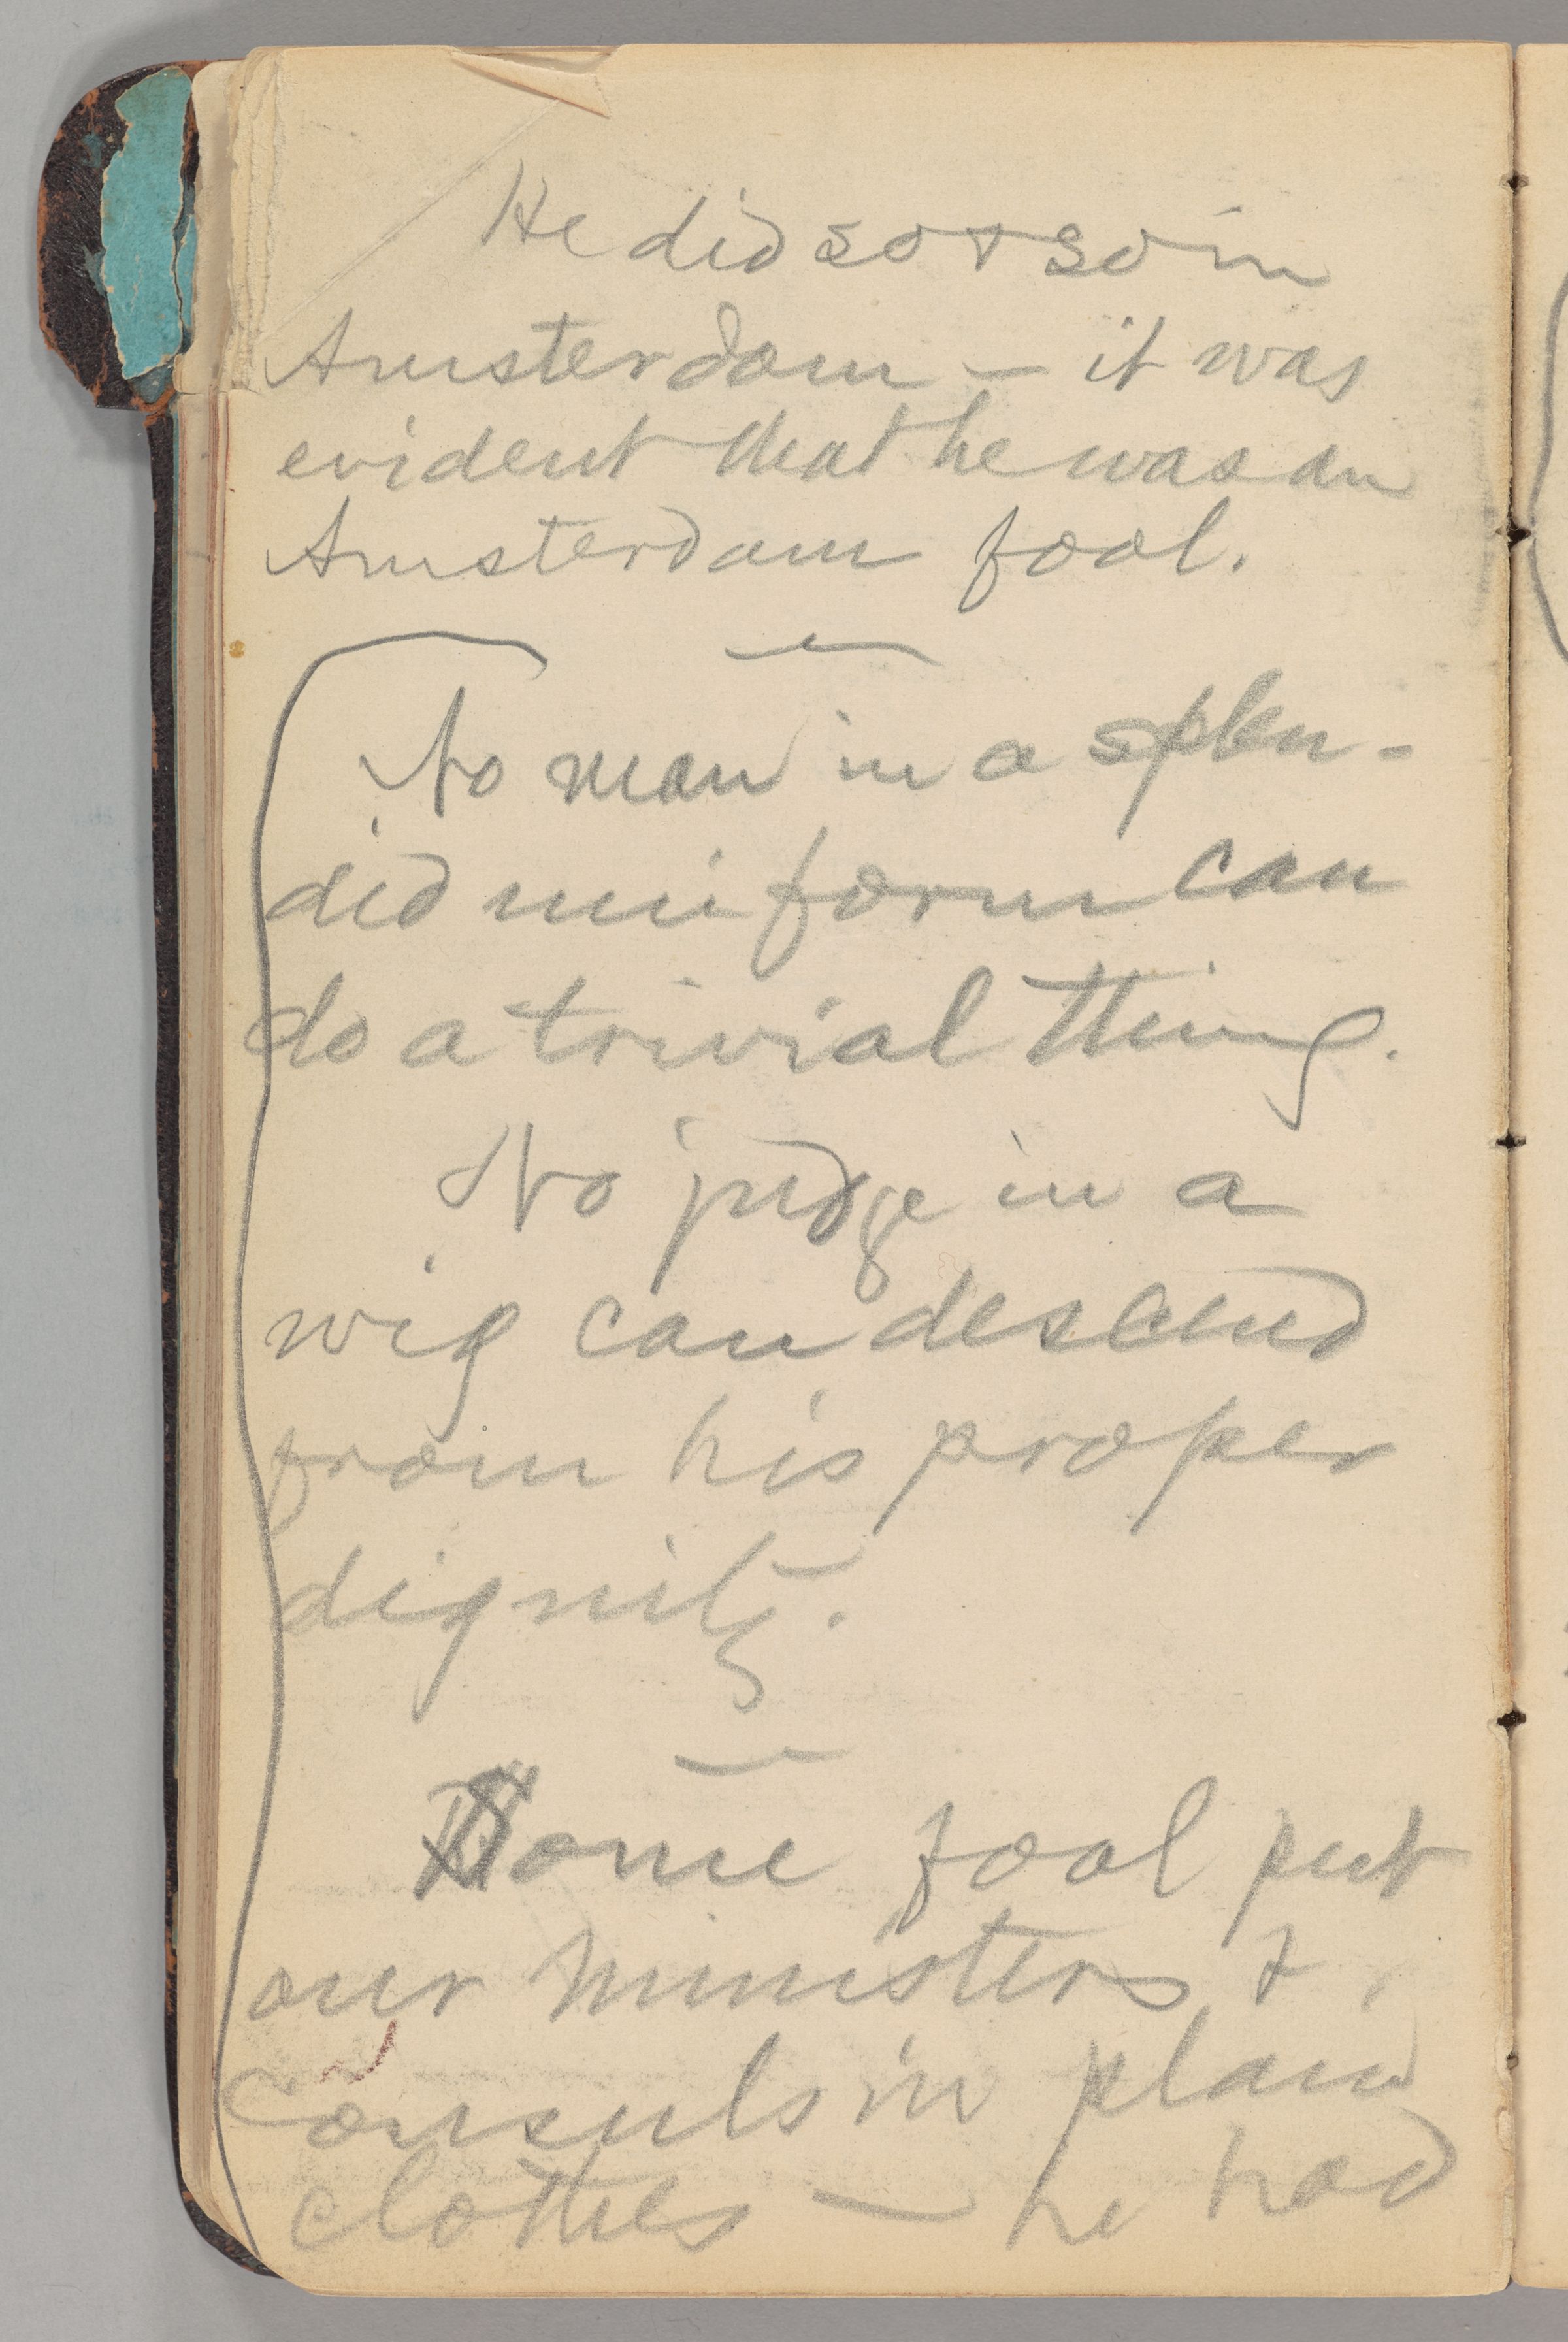 He did so & so in
Amsterdam — it was
evident that he was an
Amsterdam fool.
No man in a splen-
did uniform can
do a trivial thing.
No judge in a
wig can descend
from his proper
dignity.
Some fool put
our ministers &
consuls in plain
clothes — he had